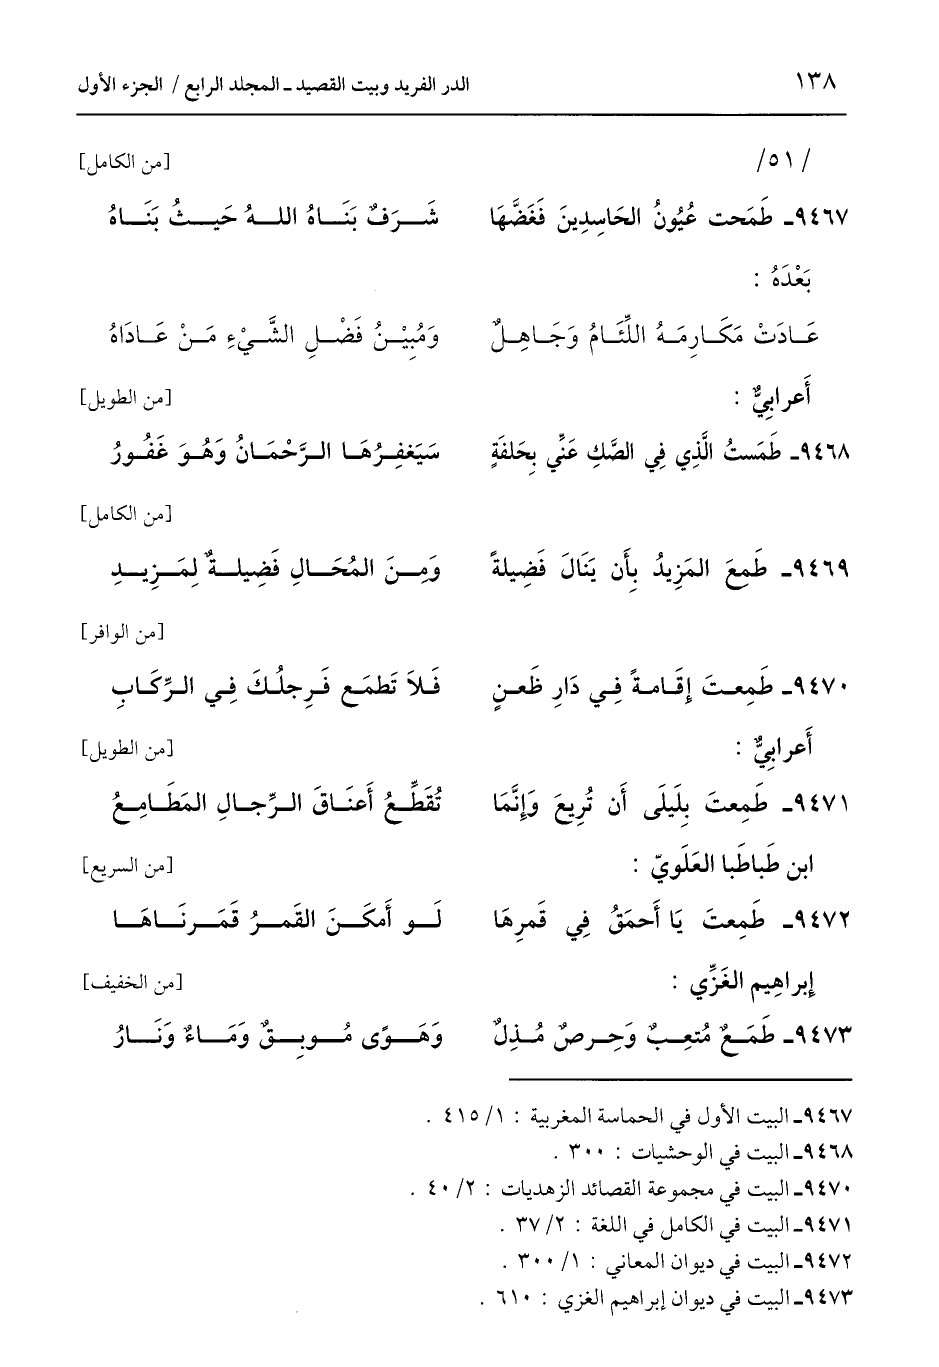 ١٣٨ الدر الفريد وبيت القصيد ـ المجلد الرابع / الجزء الأول
/ ٥١/ [من الكامل]
٩٤٦٧ـ طَمَحت عُيُونُ الحَاسِدِينَ فَغَضَّهَا شَــرَفٌ بَنَــاهُ اللــهُ حَيــثُ بَنَــاهُ
بَعْدَهُ :
عَـادَتْ مَكَـارِمَـهُ اللِّئَـامُ وَجَـاهِـلٌ وَمُبِيْـنُ فَضْـلِ الشَّـيْءِ مَـنْ عَـادَاهُ
أَعرابِيٌّ : [من الطويل]
٩٤٦٨ـ طَمَستُ الَّذِي فِي الصَّكِ عَنِّي بِحَلفَةٍ سَيَغفِـرُهَـا الـرَّحْمَـانُ وَهُـوَ غَفُـورُ
[من الكامل]
٩٤٦٩ـ طَمِعَ المَزِيدُ بِأَن يَنَالَ فَضِيلةً وَمِـنَ المُحَـالِ فَضِيلـةٌ لِمَـزِيـدِ
[من الوافر]
٩٤٧٠ـ طَمِعـتَ إِقَـامـةً فِـي دَارِ ظَعـنٍ فَـلاَ تَطمَـع فَـرِجلُـكَ فِـي الـرِّكَـابِ
أَعرابِيٌّ : [من الطويل]
٩٤٧١ـ طَمِعتَ بِلَيلَى أَن تُرِيعَ وَإِنَّمَا تُقَطِّـعُ أَعنَـاقَ الـرِّجـالِ المَطَـامِـعُ
ابن طَبَاطَبا العَلَويّ : [من السريع]
٩٤٧٢ـ طَمِعتَ يَا أَحمَقُ فِي قَمرِهَا لَـو أَمكَـنَ القَمـرُ قَمَـرنَـاهَـا
إِبراهِيم الغَزِّي : [من الخفيف]
٩٤٧٣ـ طَمَـعٌ مُتعِـبٌ وَحِـرصٌ مُـذِلٌ وَهَـوًى مُـوبِـقٌ وَمَـاءٌ وَنَـارُ
٩٤٦٧ـ البيت الأول في الحماسة المغربية : ١/ ٤١٥ .
٩٤٦٨ـ البيت في الوحشيات : ٣٠٠ .
٩٤٧٠ـ البيت في مجموعة القصائد الزهديات : ٢/ ٤٠ .
٩٤٧١ـ البيت في الكامل في اللغة : ٢/ ٣٧ .
٩٤٧٢ـ البيت في ديوان المعاني : ١/ ٣٠٠ .
٩٤٧٣ـ البيت في ديوان إبراهيم الغزي : ٦١٠ .